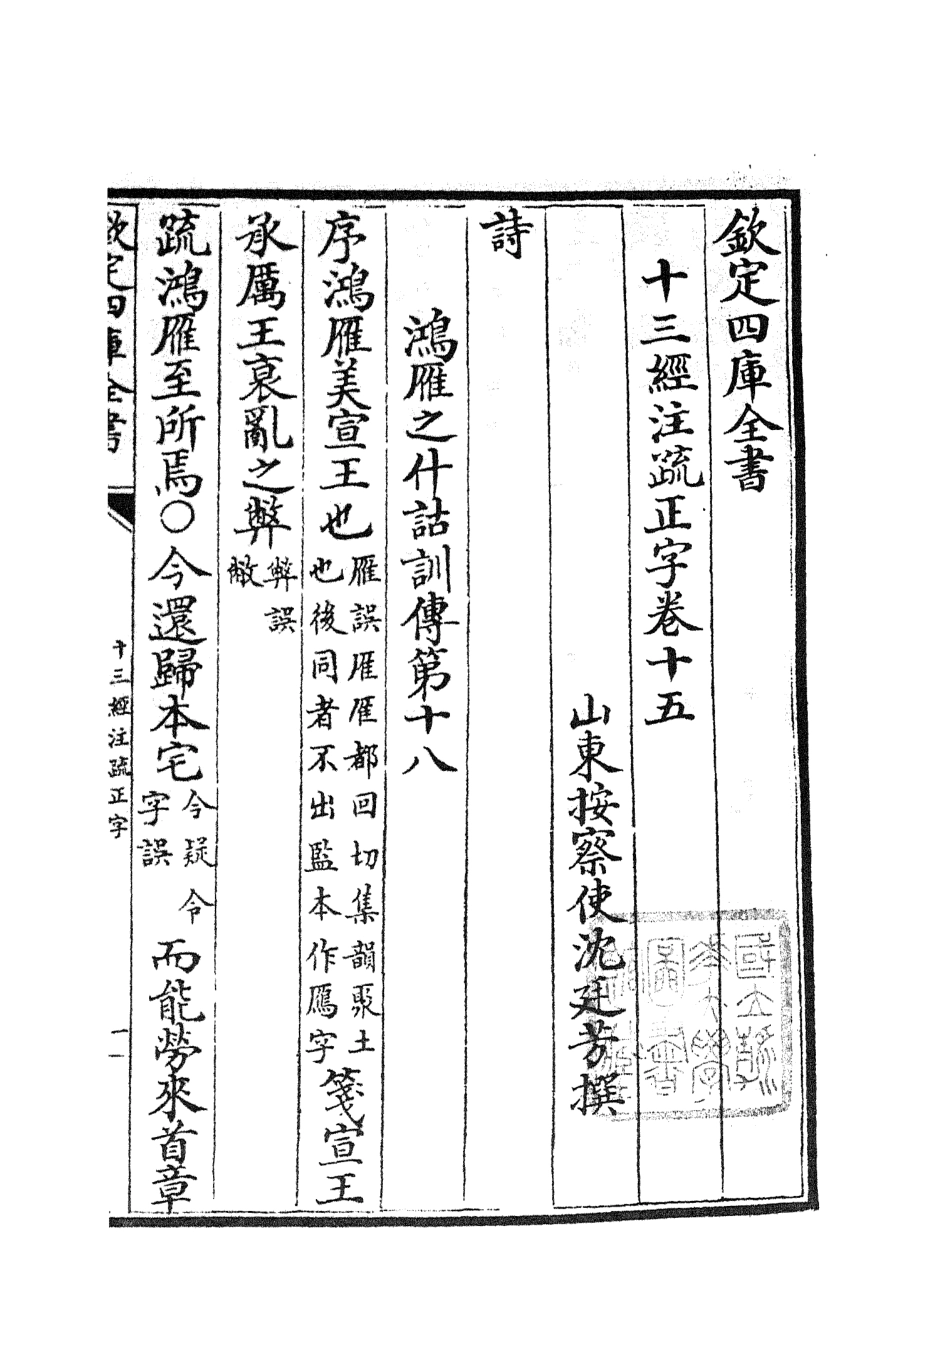 欽定四庫全書
十三經注疏正字卷十五
山東按察使沈廷芳撰
詩
鴻雁之什詁訓傳第十八
序鴻雁美宣王也雁誤雁雁都回切集韻聚土也後同者不出監本作鴈字箋宣王
承厲王衰亂之弊弊誤敝
疏鴻雁至所焉○今還歸本宅今疑令字誤而能勞來首章
欽定四庫全書
十三經注疏正字
一